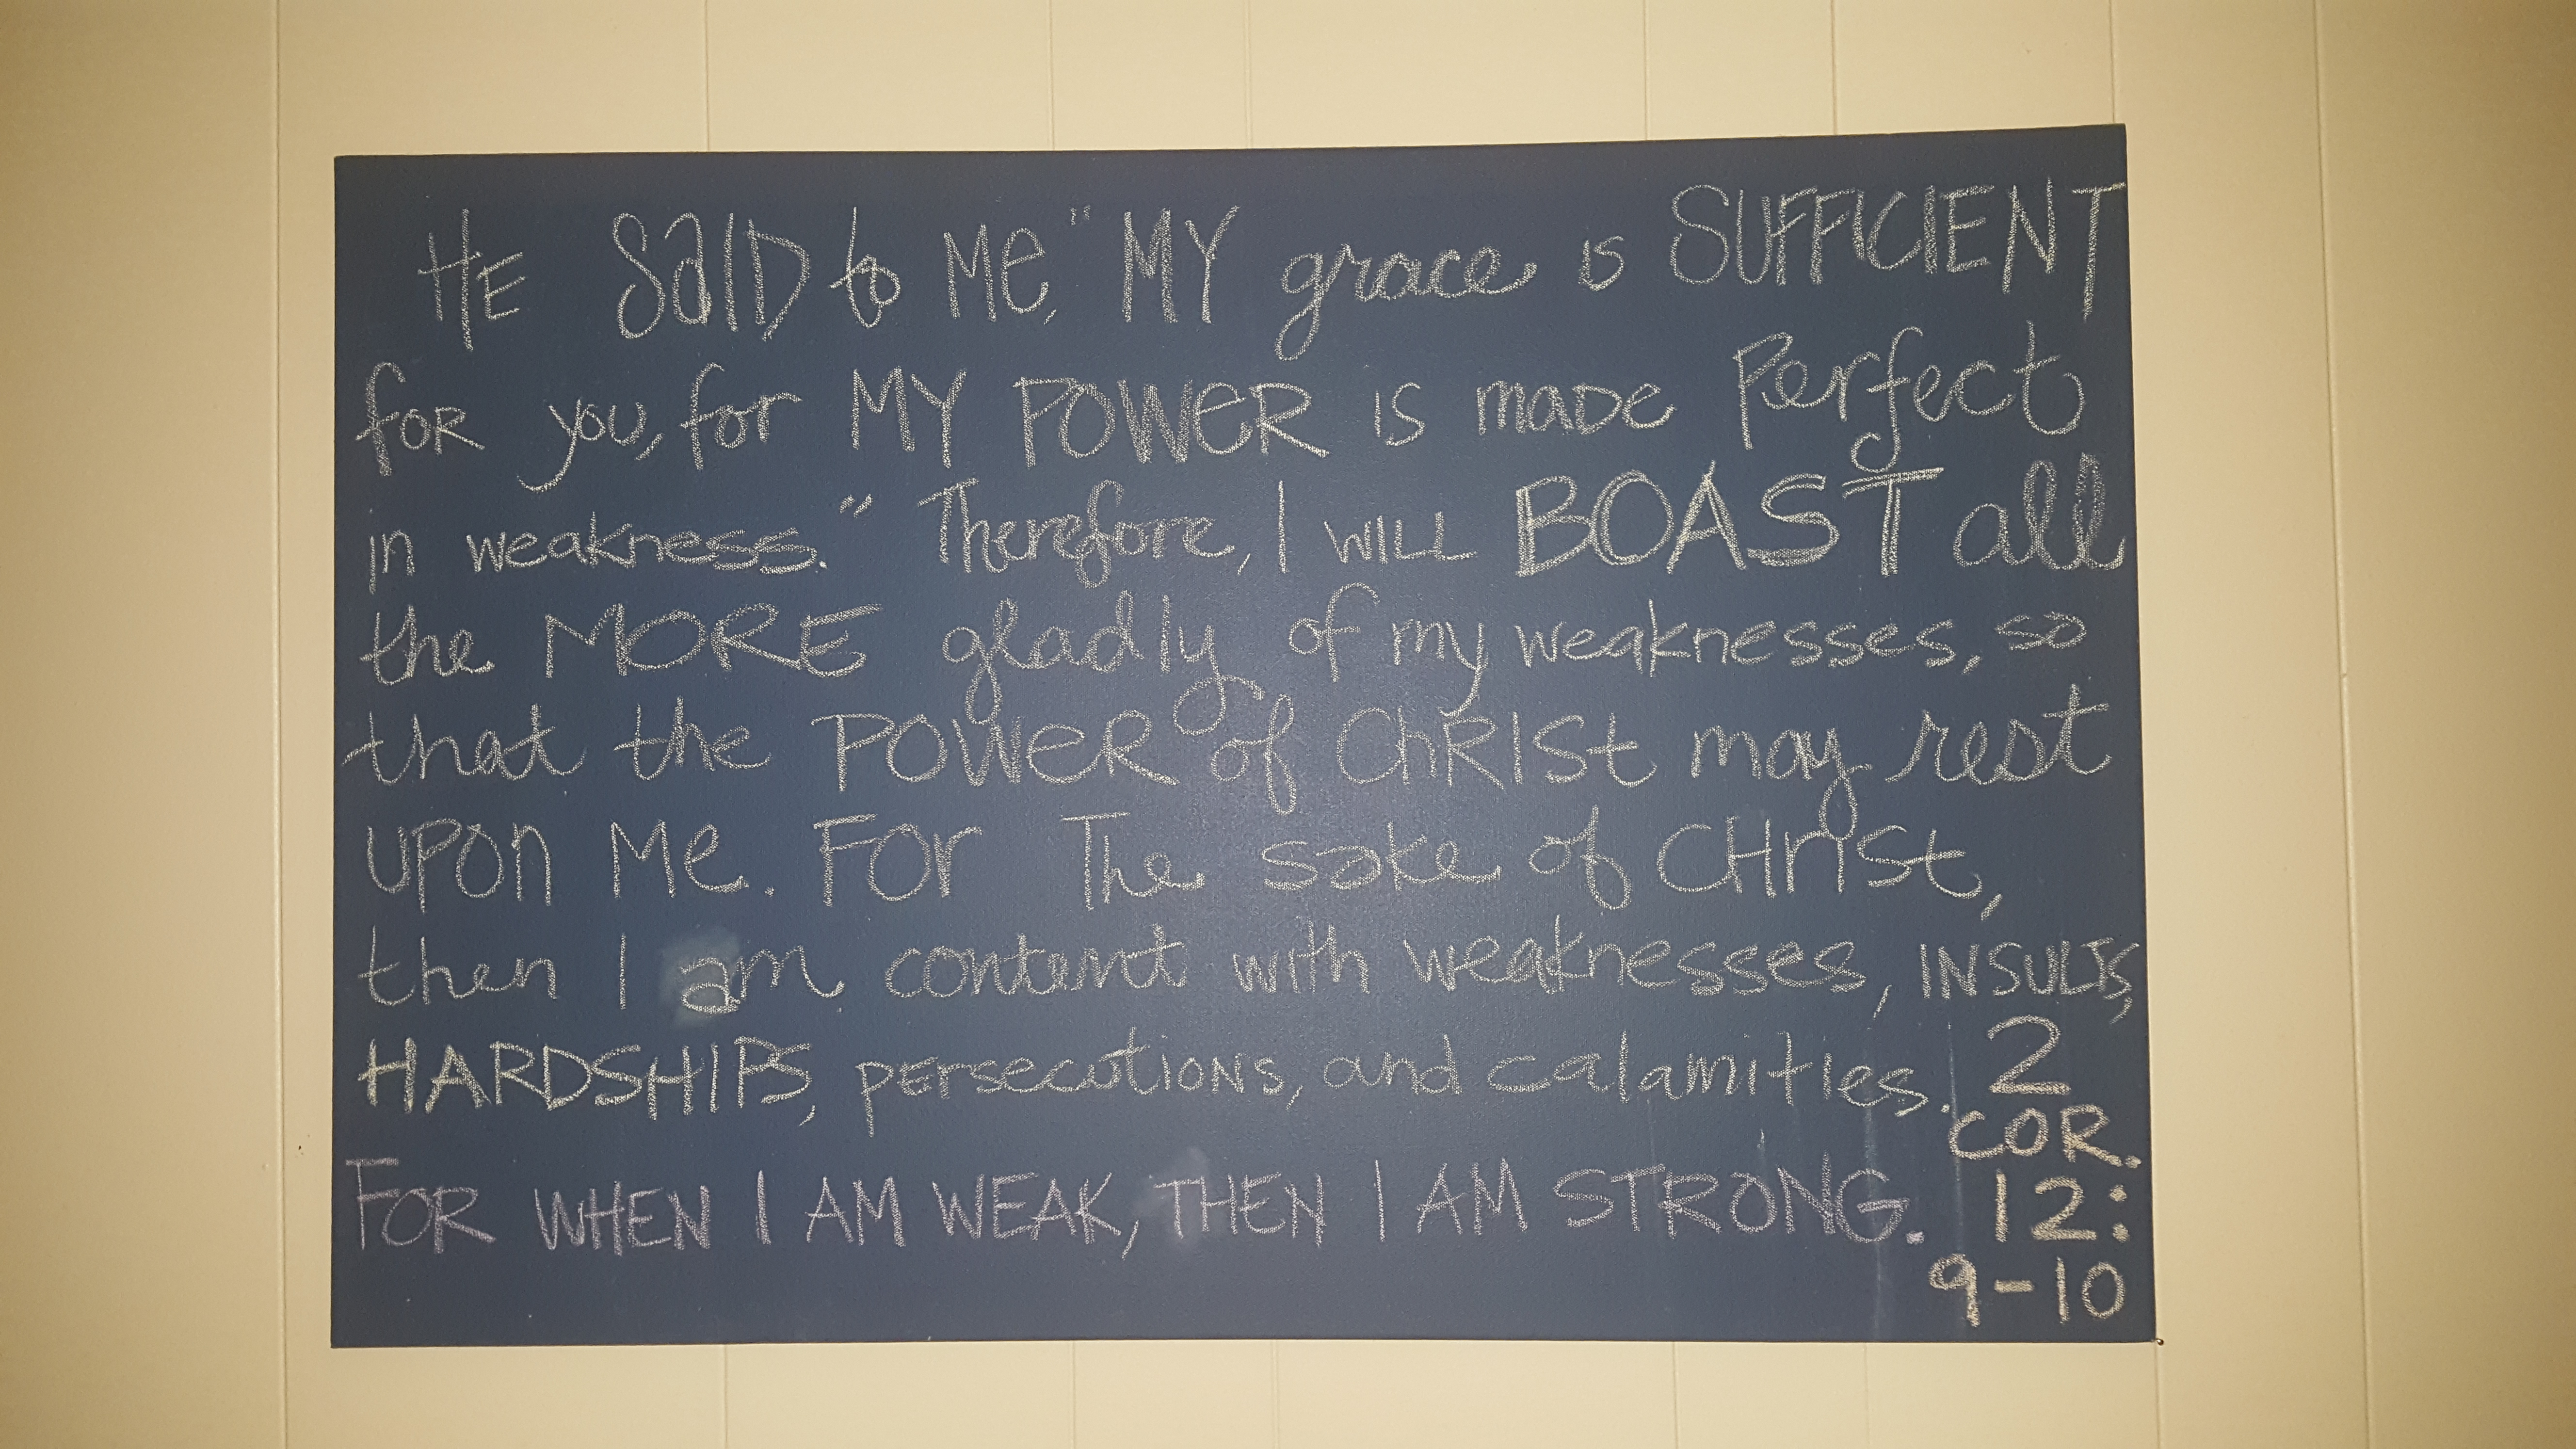 HE SaID to Me, "MY grace is SUFFICIENT
foR you, for MY POWeR IS maDe Perfect
in weakness." Therefore, I WILL BOAST all
the MORE gladly of my weaknesses, so
that the POWeR of ChRISt may rest
UPOn Me. FOr The sake of CHrISt,
then I am content with weaknesses, INSULTS,
HARDSHIPS, pErsecutIONS, and calamities.
FOR WHEN I AM WEAK, THEN I AM STRONG.
2
COR.
12:
9-10